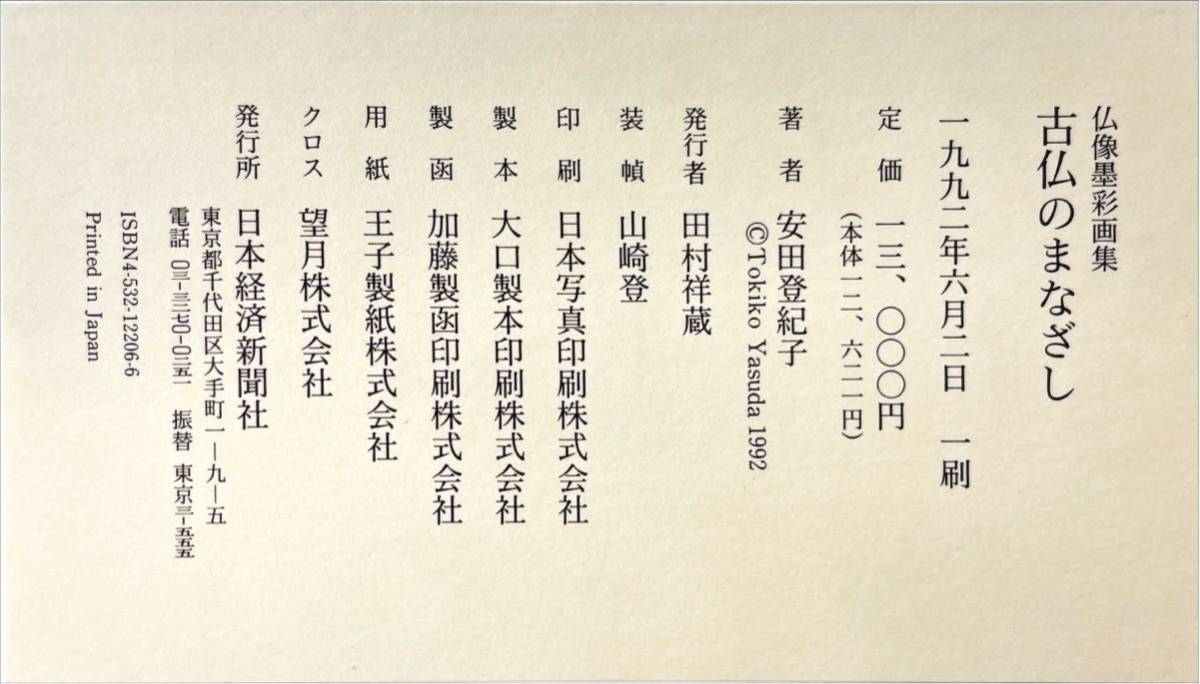 仏像墨彩画集
古仏のまなざし
一九九二年六月二日　一刷
定　価　一三、〇〇〇円
（本体一二、六二一円）
著　者　安田登紀子
©Tokiko Yasuda 1992
発行者　田村祥蔵
装　幀　山崎登
印　刷　日本写真印刷株式会社
製　本　大口製本印刷株式会社
製　函　加藤製函印刷株式会社
用　紙　王子製紙株式会社
クロス　望月株式会社
発行所　日本経済新聞社
東京都千代田区大手町一―九―五
電話　〇三-三二七〇-〇二五一　振替　東京三-五五五
ISBN4-532-12206-6
Printed in Japan